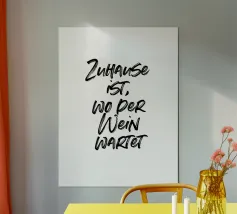 ZUHAUSE
IST,
WO DER
WEIN
WARTET